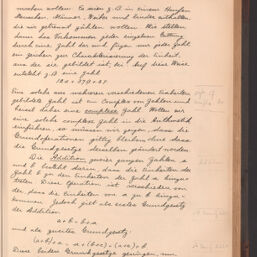 machen wollen. Es seien z.B. in einem Haufen
Menschen, Männer, Weiber und Kinder enthalten
die wir getrennt zählen wollen. Wir stellen
dann das Vorkommen jeder einzelnen Gattung
durch eine Zahl dar und fügen nun jeder Zahl
ein Zeichen zur Charakterisirung der Einheit,
aus der sie gebildet ist, bei. Auf diese Weise
entsteht z.B. eine Zahl
Eine solche aus mehreren verschiedenen Einheiten
gebildete Zahl ist ein Complex von Zahlen und
heisst daher eine complexe Zahl. Wollen wir
eine solche complexe Zahl in die Arithmetik
einführen, so müssen wir zeigen, dass die
Grundoperationen giltig bleiben, ohne dass
die Grundgesetze derselben geändert werden.
Die Addition zweier ganzen Zahlen a
und b besteht darin, dass die Einheiten der
Zahl b zu den Einheiten der Zahl a hinzu-
treten. Diese Operation ist verschieden von
der, dass die Einheiten von a zu b hinzu-
kommen. Jedoch gilt als erstes Grundgesetz
der Addition
a+b = b+a
und als zweites Grundgesetz:
(a+b)+c = a+(b+c) = (a+c)+b
Diese beiden Grundgesetze genügen, um